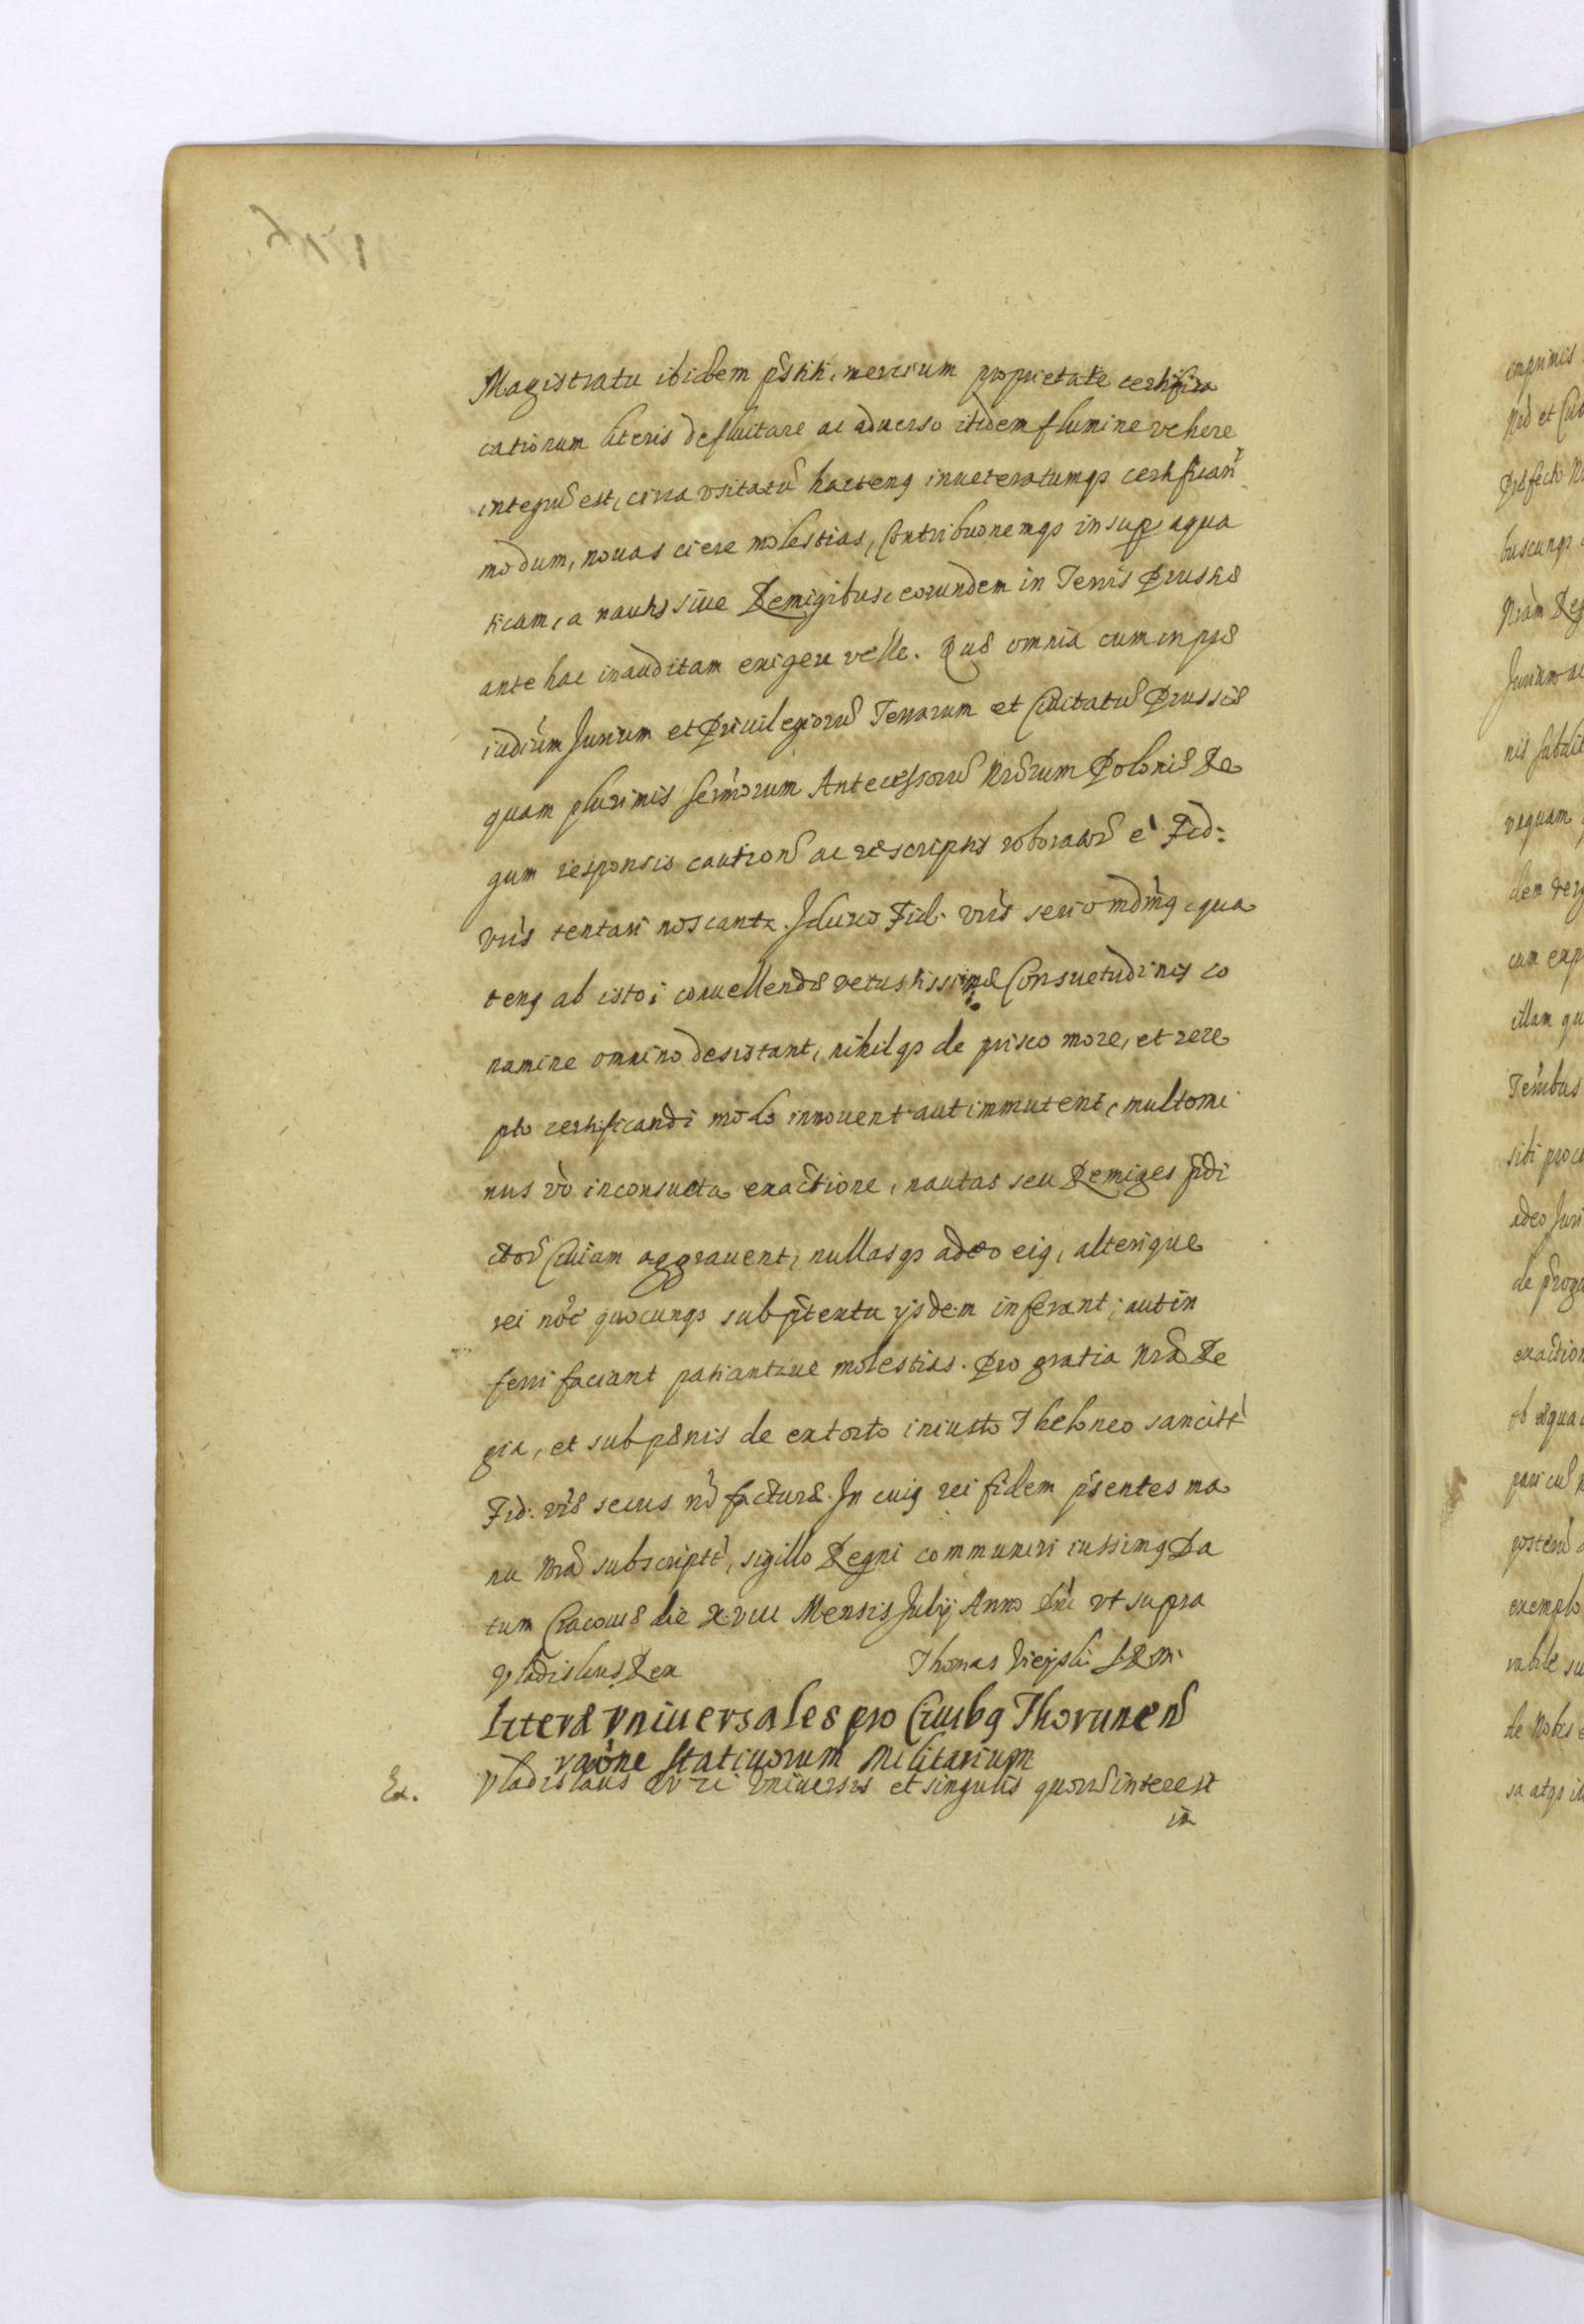 Magistratu ibidem pstiti, mercium proprietate certifica
cationum literis defluitare ac aduerso itidem flumine vehere
integrũ est, circa vsitatũ hacteng inueteratumqз certifican̄
modum, nouas ciere molestias, Contribuonemqз insup aqua
ticam, a nautis siue Remigibus eorundem in Terris Prussiæ
antehac inauditam exigere velle. Quæ omnia cum in præ
iudicium Jurium et Priuilegiorũ Terrarum et Ciuitatũ Prussiæ
quam plurimis sermorum Antecessorũ Nrorum Poloniæ Re
gum responsis cautionũ ac rescriptis roboratorũ è Fid:
vris tentari noscantr. Iduirco Fid. vris serio mdmg qua
teng ab isto, conuellendæ vetustissimæ Consuetudinis co
namine omnino desistant, nihilqз de prisco more, et rece
pto certificandi modo innouent aut immutent, multomi
nus vò inconsueta exactione, nautas seu Remiges pdi
ctorũ Ciuiam aggrauent, nullasqз adeo eig, alteriqué
rei noĩe quocunqз sub ptextu ijsdem inferant, aut in
ferri faciant patianturue molestias. Pro gratia Nra Re
gia, et sub pænis de extorto iniusto Theloneo sancitt
Fid. vræ secus nō facturæ. In cuig rei fidem psentes ma
nu Nra subscriptt, sigillo Regni communiri iussimg Da
tum Cracouiæ die XVIII Mensis Julij Anno Dni vt supra
Vladislaus Rex Thomas Vieyski S R M.
Literæ Vniuersales pro Ciuibg Thorunen̄
raõne statiuorum Militarium
Ex. Vladislaus Vniuersis et singulis quorũ interest
in